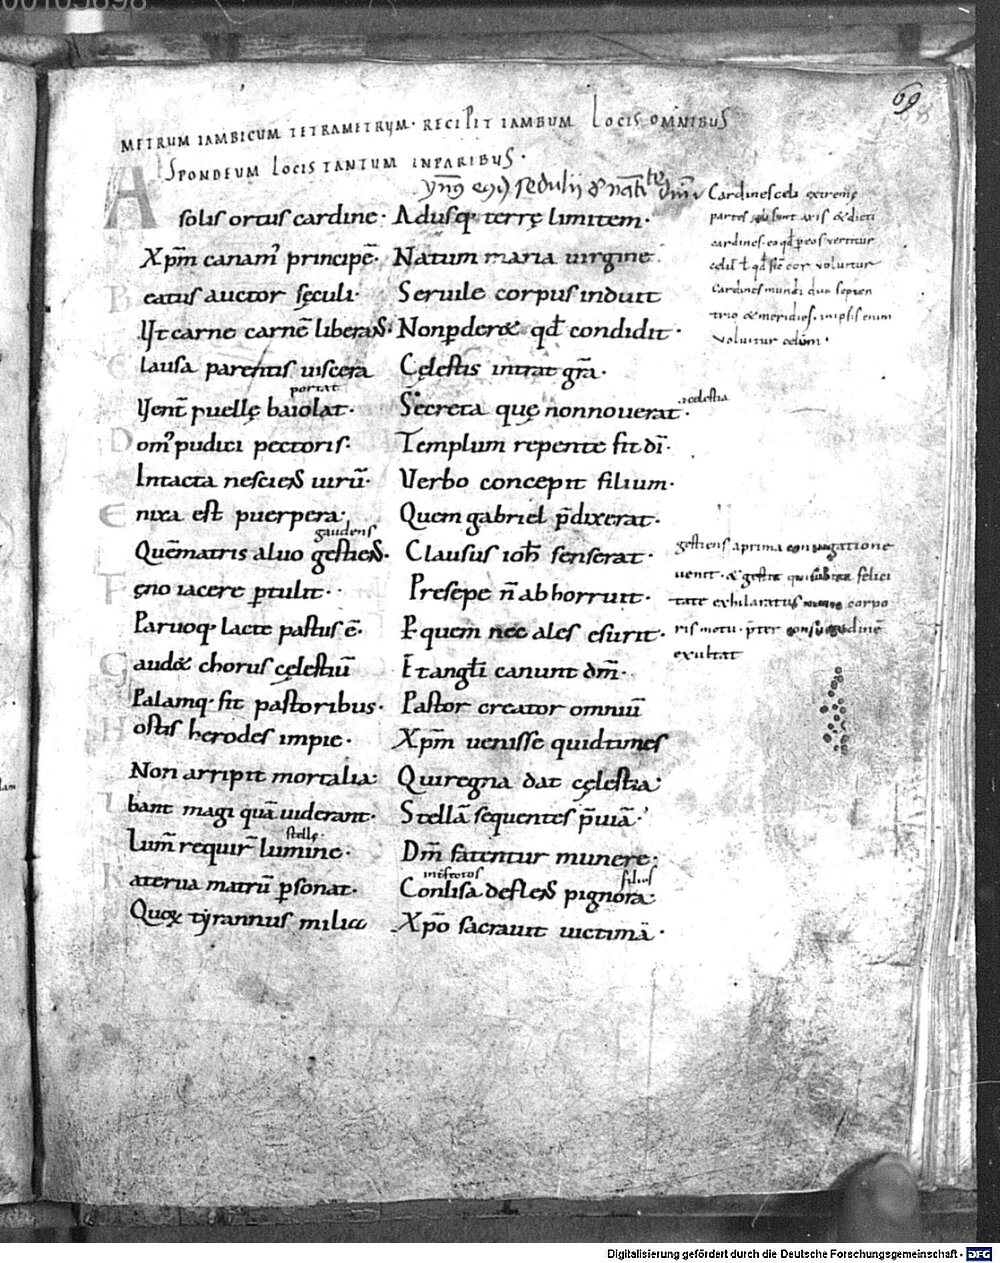 00105698
69
METRUM IAMBICUM TETRAMETRUM· RECIPIT IAMBUM LOCIS OMNIBUS
SPONDEUM LOCIS TANTUM INPARIBUS·
ẏmnꝰ sedulii
A solis ortus cardine· Adusq· terrę limitem·
Xp̄m canamꝰ principē· Natum maria uirgine
Beatus auctor sęculi· Seruile corpus induit
Ut carne carnē liberans· Nonp̲deret qd̄ condidit·
Clausa parentis uiscera Cęlestis intrat gr̄a·
portat
Uent̄ puellę baiolat· Secreta quę nonnouerat·
cęlestia
Domꝰ pudici pectoris· Templum repente fit dī·
Intacta nesciens uirū· Verbo concepit filium·
Enixa est puerpera· Quem gabriel p̄dixerat·
gaudens
Quēmatris aluo gestiens· Clausus ioħ senserat·
Fęno iacere p̲tulit· Presepe n̄ abhorruit·
Paruoq· lacte pastus ē· P̲ quem nec ales esurit·
Gaudet chorus cęlestiū Et angłi canunt dm̄·
Palamq· fit pastoribus· Pastor creator omniū
Hostis herodes impie· Xp̄m uenisse quidtimes
Non arripit mortalia· Quiregna dat cęlestia·
Ibant magi quā uiderant· Stellā sequentes p̄uiā·
stellę·
Lum̄ requir̄ lumine· Dm̄ fatentur munere·
infectos filios
Katerua matrū p̲sonat· Conlisa deflens pignora·
Quorum tyrannus milia Xp̄o sacrauit uictimā·
Cardines celi extremę
partes sunt axis & dicti
cardines· eo qd̄ p̲ eos vertitur
celū
Cardines mundi duo septen
trio & meridies· in ipsis enim
voluitur celum·
gestiens aprima coniugatione
uenit· & gestit qui subita felici
tate exhilaratus corpo
ris motu· p̄ter consuetudinē
exultat
Digitalisierung gefördert durch die Deutsche Forschungsgemeinschaft · DFG